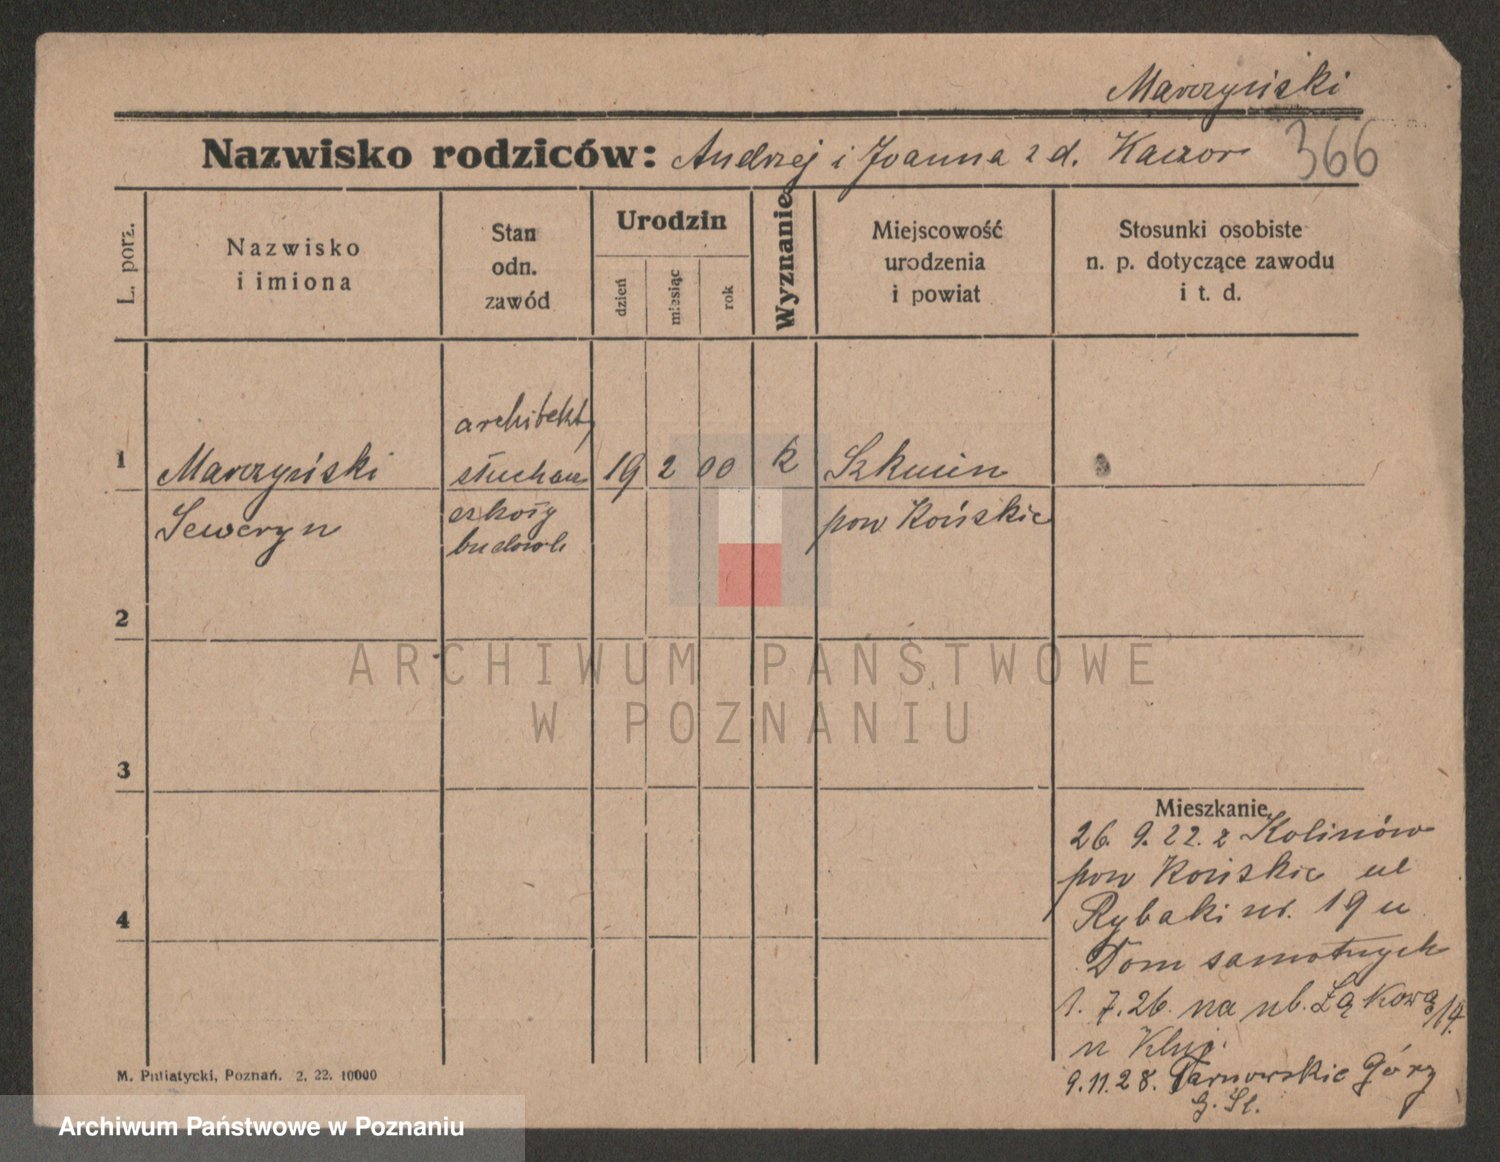 Marczyński
Nazwisko rodziców: Andrzej i Joanna z d. Kaczor 366
L. porz.
Nazwisko
i imiona
Stan
odn.
zawód
Urodzin
dzień
miesiąc
rok
Wyznanie
Miejscowość
urodzenia
i powiat
Stosunki osobiste
n. p. dotyczące zawodu
i t. d.
architekt,
1 Marczyński słuchacz 19 2 00 k
Seweryn szkoły pow Końskie
budowl.
2
3
4
ARCHIWUM PAŃSTWOWE
W POZNANIU
Mieszkanie
26. 9. 22. z Kolinów
pow Końskie ul
Rybaki nr. 19 u
Dom samotnych
1. 7. 26. na ul. Łąkową 14
u
9.11.28. Tarnowskie Góry
G. Śl.
M. Putiatycki, Poznań. 2. 22. 10000
Archiwum Państwowe w Poznaniu